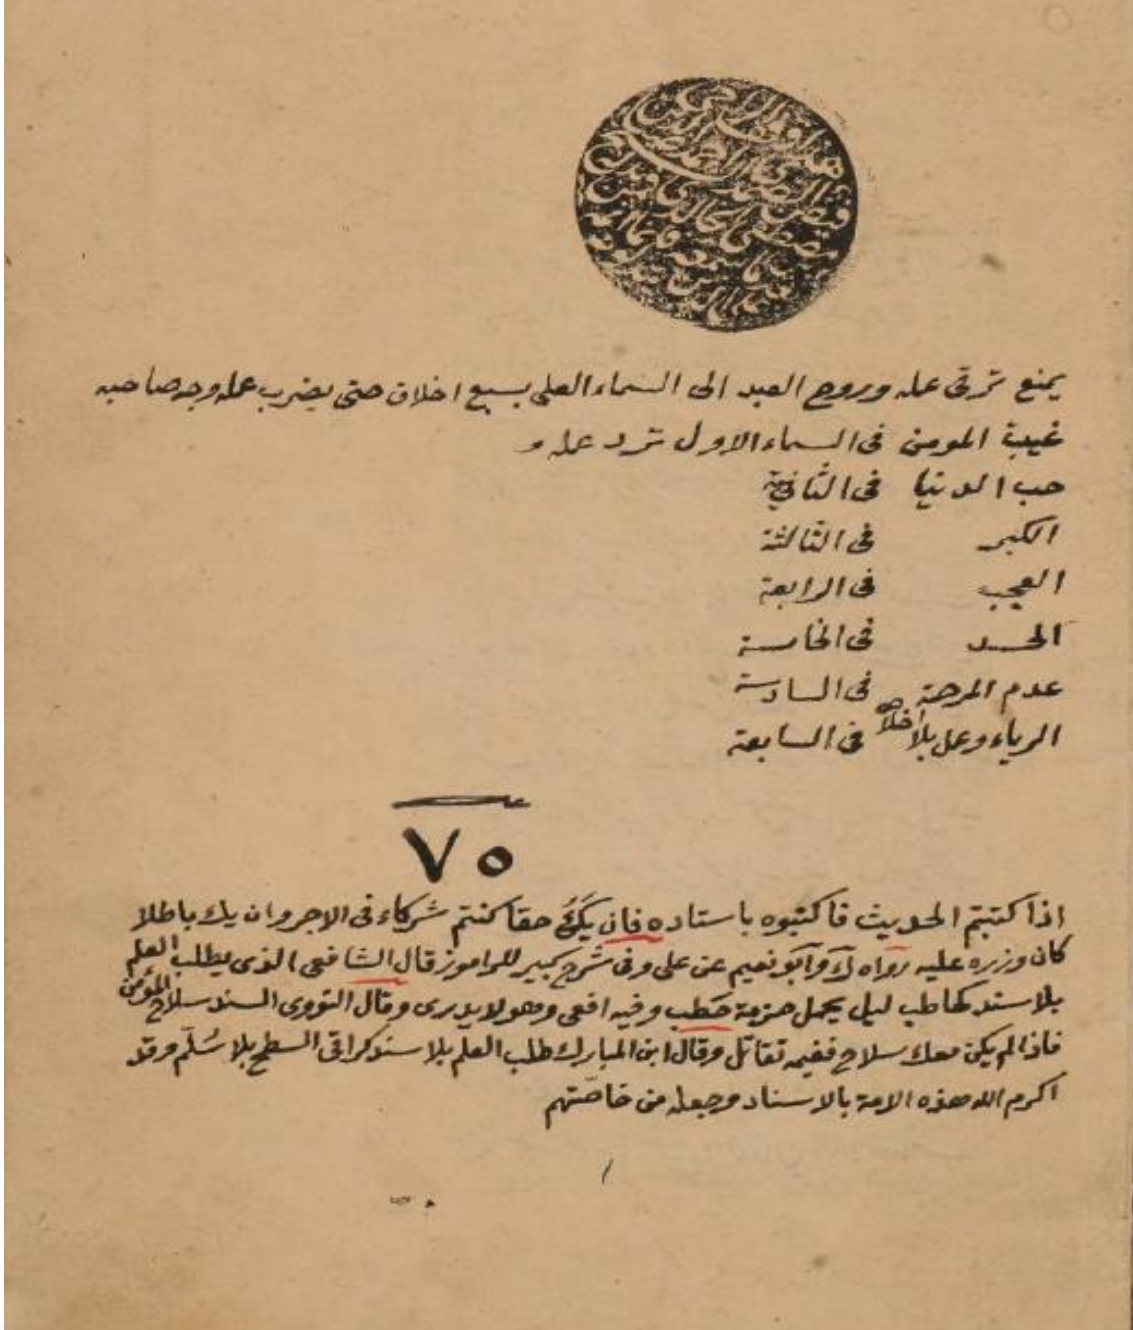 يمنع ترقى عمله وروح العبد الى السماء العلى بسبع اخلاق حتى يضرب عمله وجه صاحبه
غيبة المومن فى السماء الاول ترد عمله و
حب الدنيا فى الثانية
الكبر فى الثالثة
العجب فى الرابعة
الحسد فى الخامسة
عدم المرحمة فى السادسة
الرياء وعمل بلا أخلاص فى السابعة
٧٥
اذا كتبتم الحديث فاكتبوه باسناده فان يَكُ حقا كنتم شركاء فى الاجر وان يك باطلا
كان وزره عليه رواه ك وأبو نعيم عن على وفى شرح كبير للراموز قال الشافعى الذى يطلب العلم
بلا سند كحاطب ليل يحمل حزمة حَطب وفيه افعى وهو لا يدرى وقال النووى السند سلاح المؤمن
فاذا لم يكن معك سلاح ففيم تقاتل وقال ابن المبارك طلب العلم بلا سند كراقى السطح بلا سُلّم وقد
اكرم الله هذه الامة بالاسناد وجعله من خاصّتهم